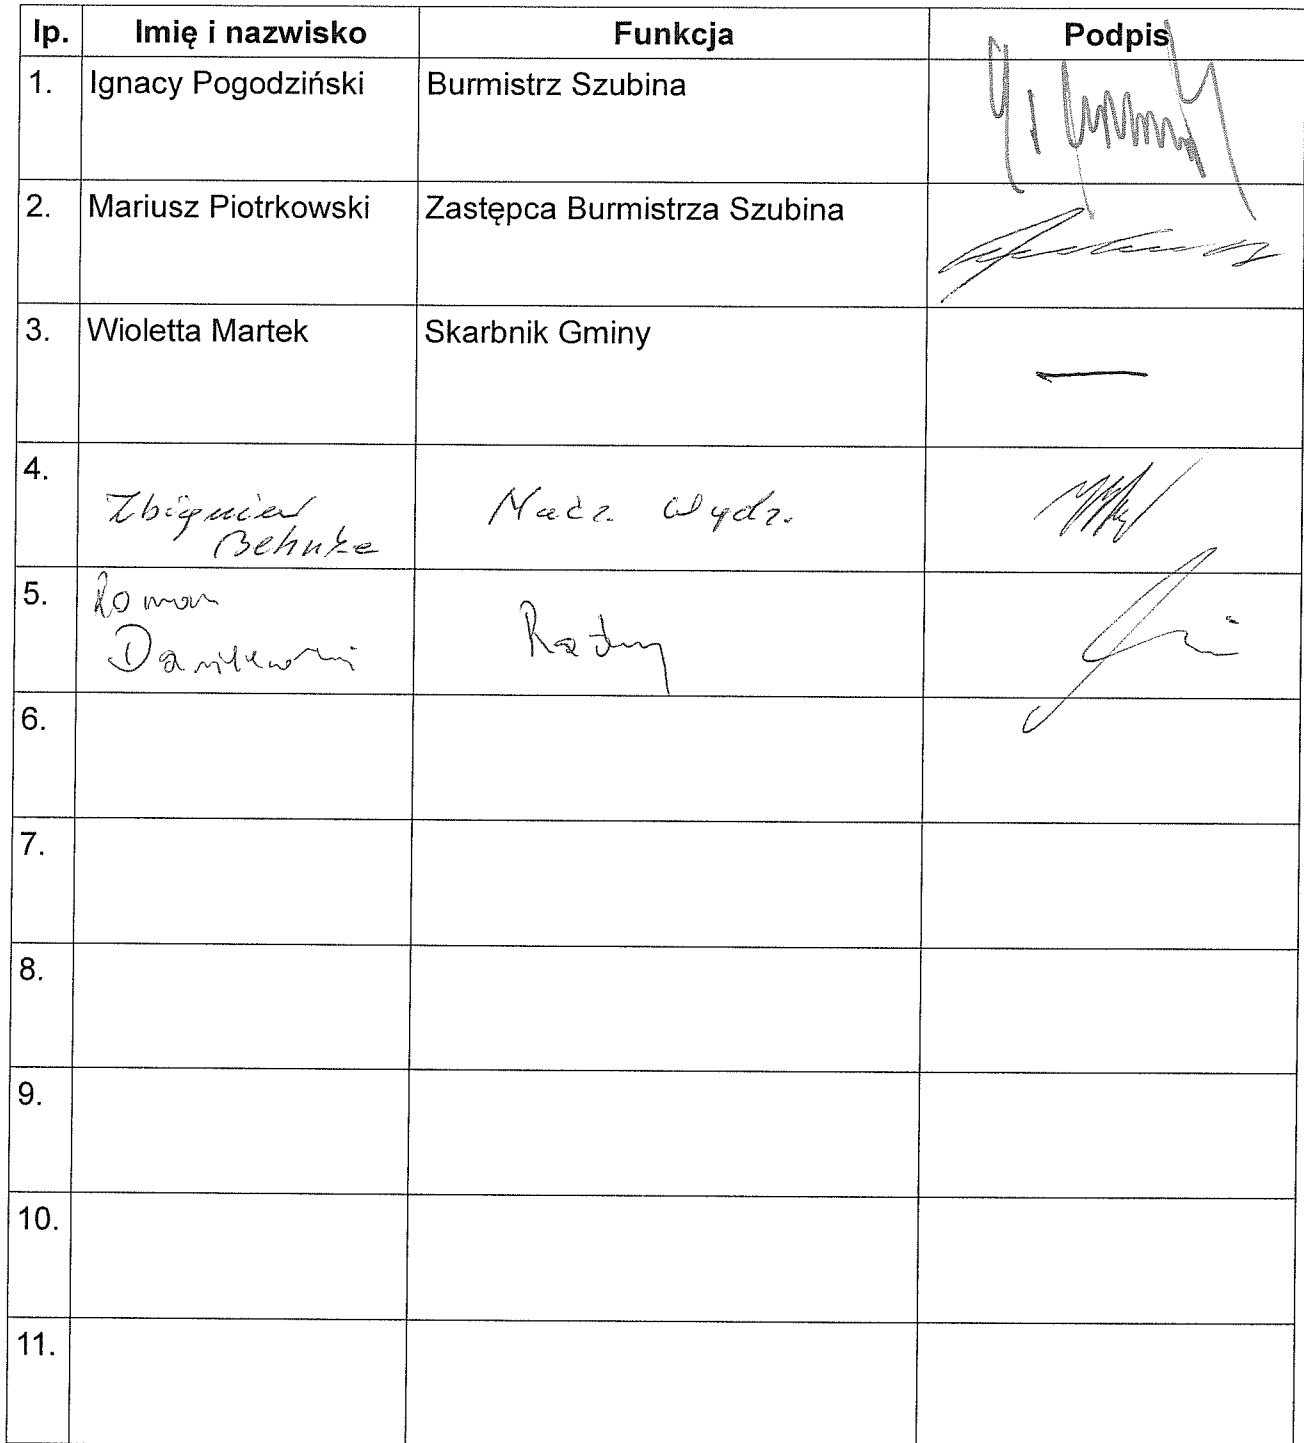 lp. Imię i nazwisko Funkcja Podpis
1. Ignacy Pogodziński Burmistrz Szubina
2. Mariusz Piotrkowski Zastępca Burmistrza Szubina
3. Wioletta Martek Skarbnik Gminy
4.
Zbigniew Nacz. Wydz.
Behnke
5. Roman
Radny
6.
7.
8.
9.
10.
11.